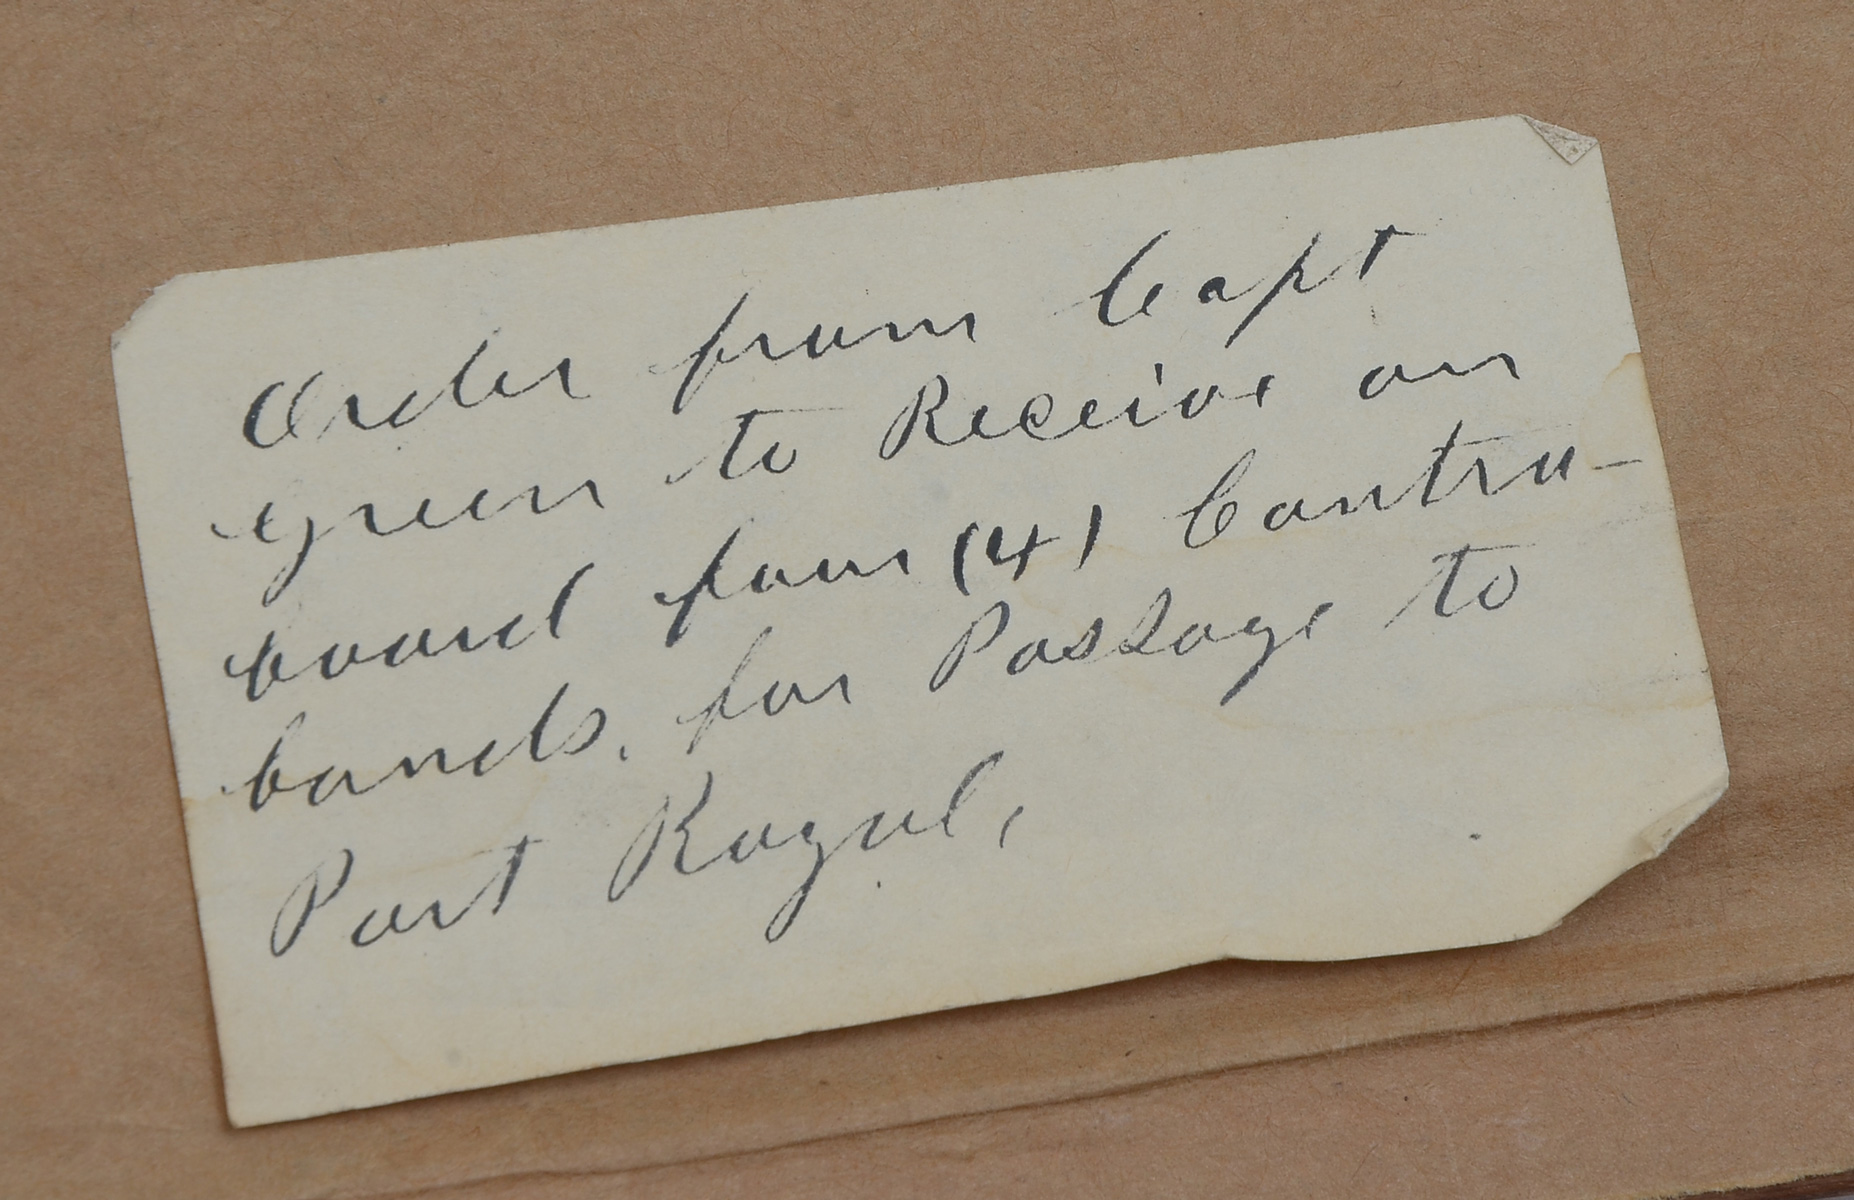 Order from Capt
Green to Receive on
board four (4) Contra-
bands, for Passage to
Port Royal,